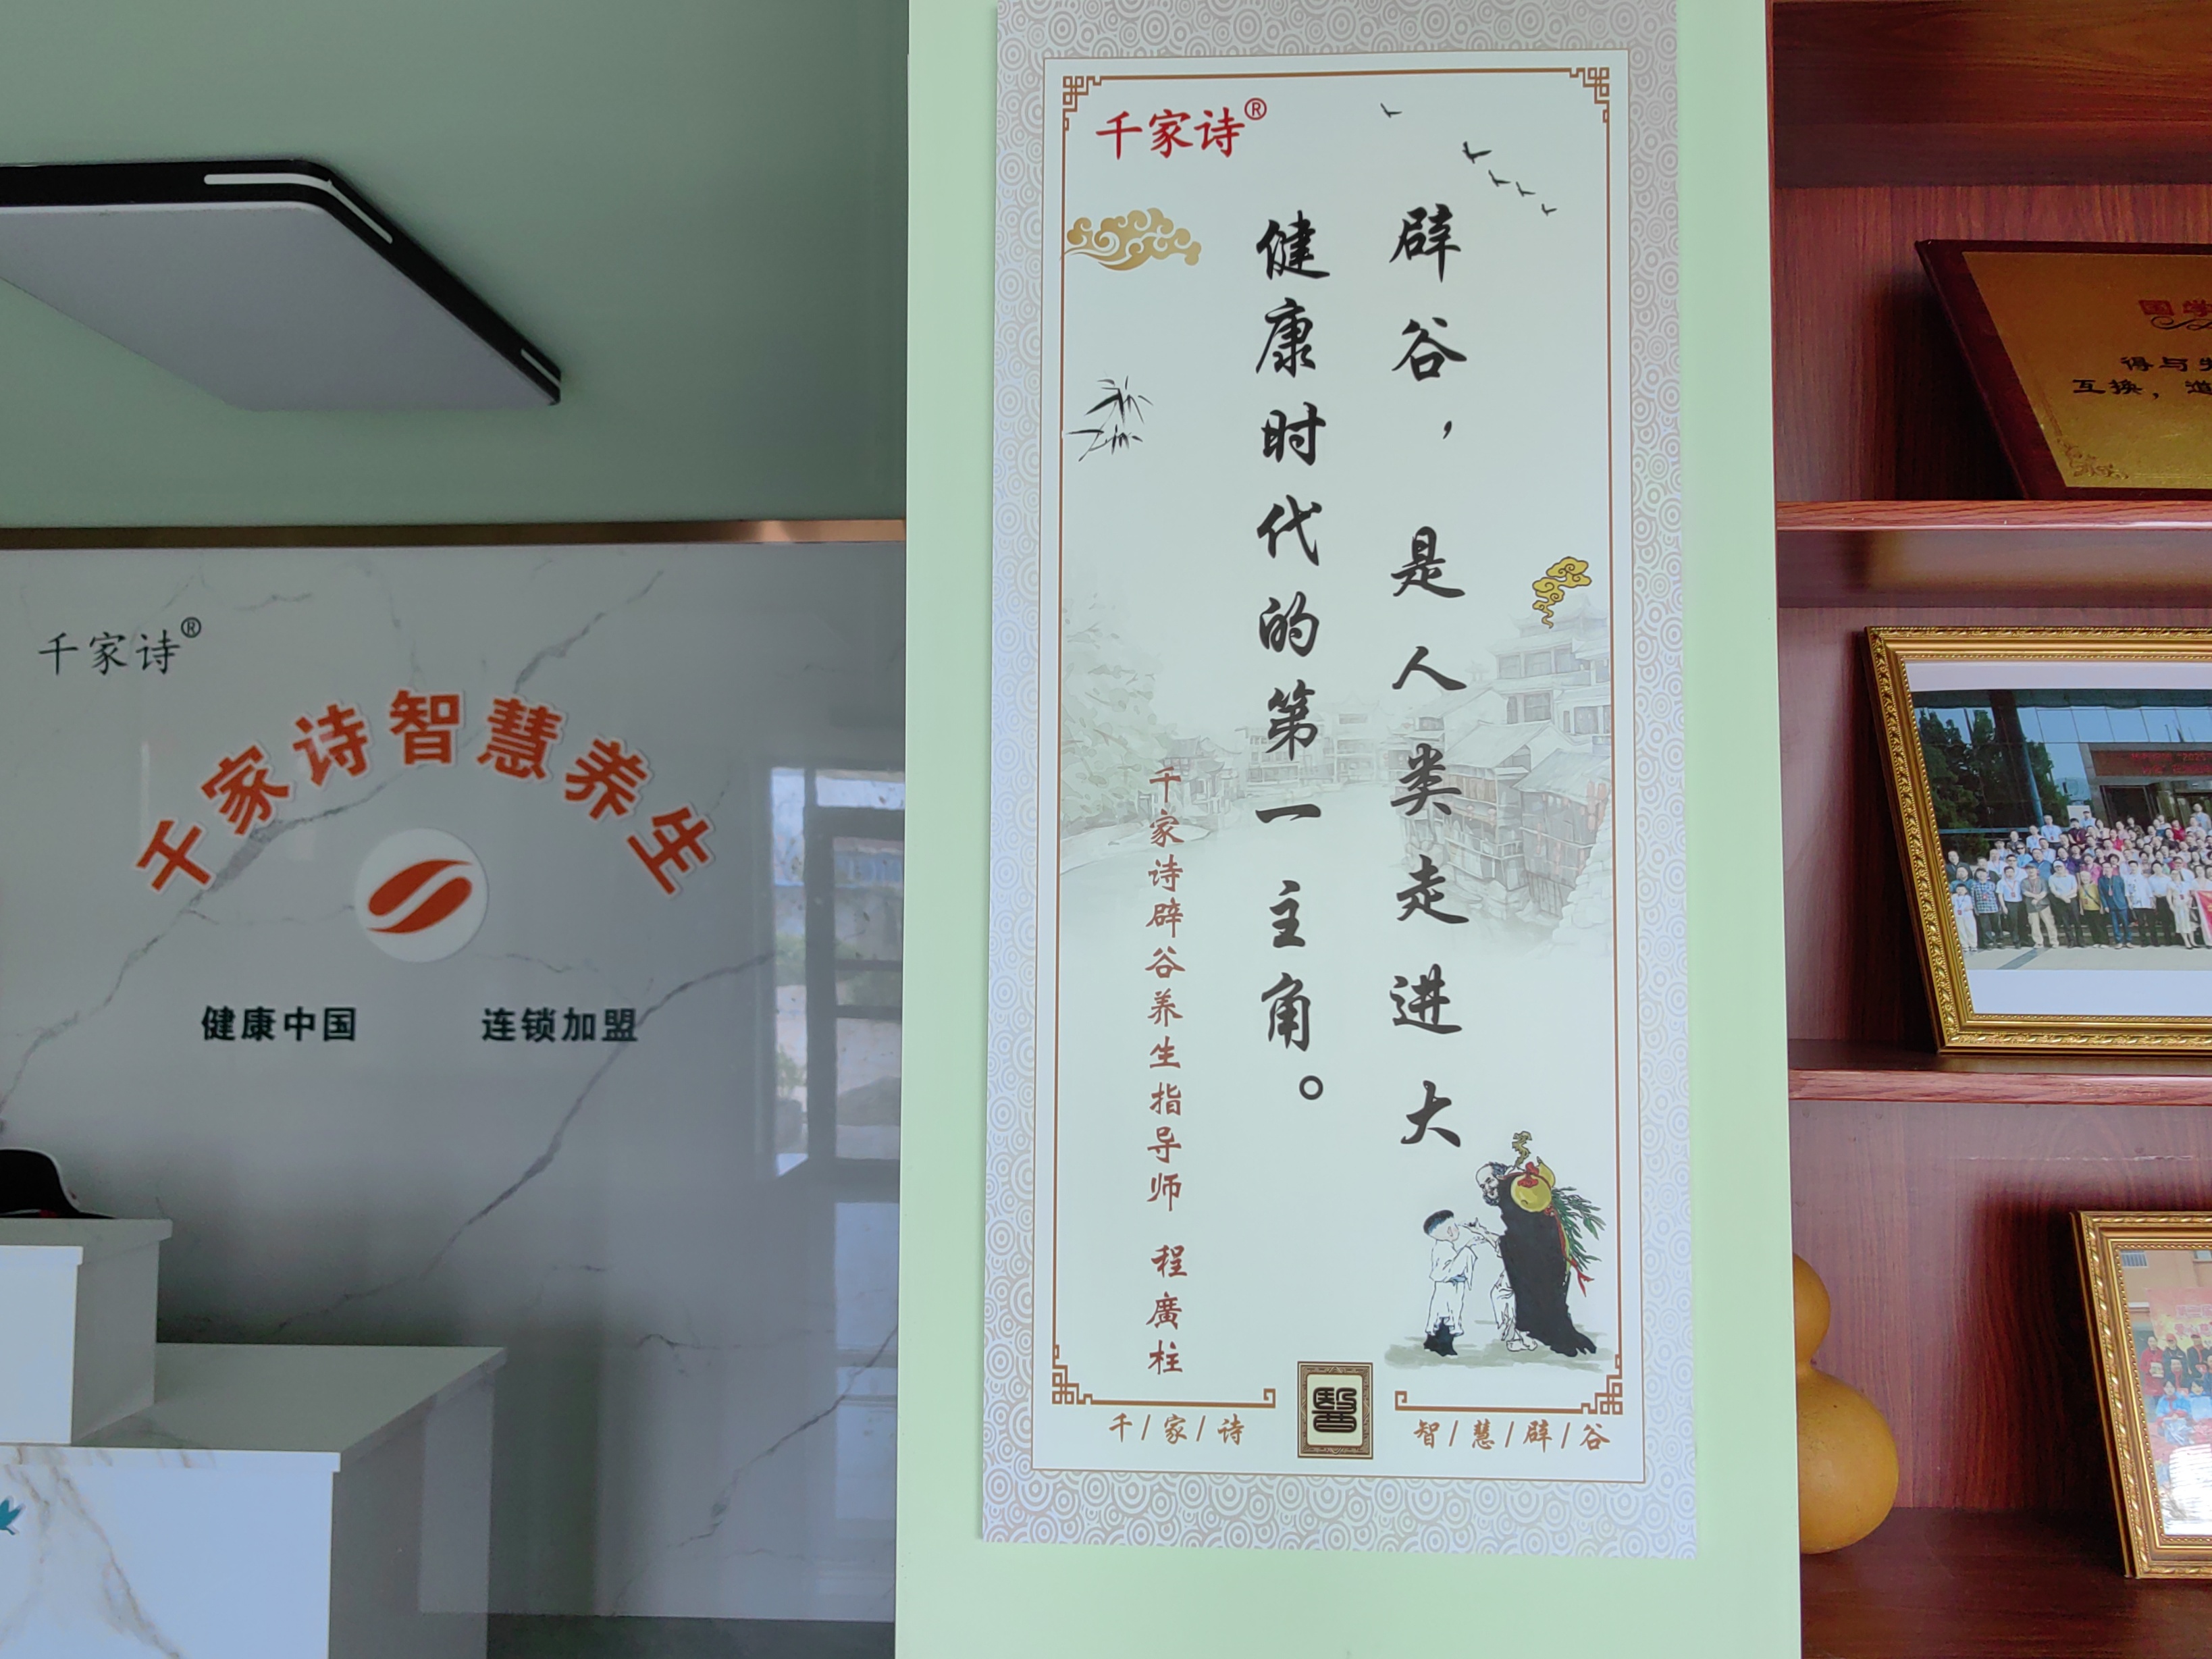 千家诗®
千家诗智慧养生
健康中国 连锁加盟
千家诗®
辟谷，是人类走进大
健康时代的第一主角。
千家诗辟谷养生指导师 程廣柱
千/家/诗
醫
智/慧/辟/谷
国学
得与失
互换，道